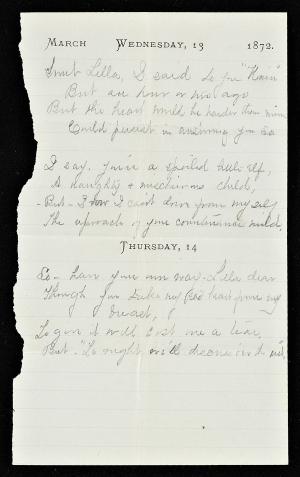 March Wednesday, 13 1872.
Sweet Lella, I said to you "Nain"
But an hour or two ago
But the heart would be harder than mine
Could persist in answering you so
I say, you're a spoiled little elf,
A naughty & mischievous child,
- But - I vow I can't drive from my self
The approach of your countenance mild.
Thursday, 14
So - have your own way - Lella dear
Though you take my heart from my
breast,
To give it will cost me a tear,
But - "To night we'll